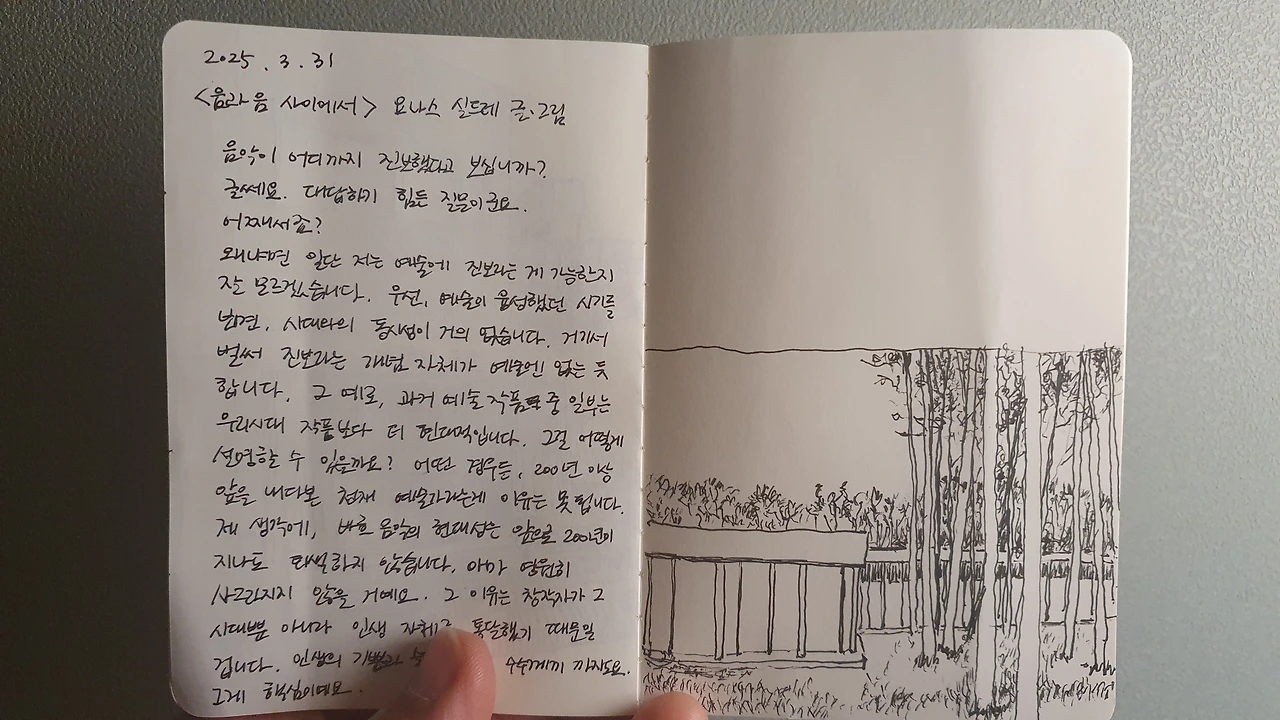 2025. 3. 31
<음과 음 사이에서> 요나스 실드레 글·그림
음악이 어디까지 진보했다고 보십니까?
글쎄요. 대답하기 힘든 질문이군요.
어째서죠?
왜냐면 일단 저는 예술에 진보라는 게 가능한지
잘 모르겠습니다. 우선, 예술의 융성했던 시기를
보면, 시대와의 동시성이 거의 없습니다. 거기서
벌써 진보라는 개념 자체가 예술엔 없는 듯
합니다. 그 예로, 과거 예술 작품 중 일부는
우리시대 작품보다 더 현대적입니다. 그걸 어떻게
설명할 수 있을까요? 어떤 경우든, 200년 이상
앞을 내다본 천재 예술가라는게 이유는 못 됩니다.
제 생각에, 바흐 음악의 현대성은 앞으로 200년이
지나도 퇴색하지 않습니다. 아마 영원히
사그라지지 않을 거예요. 그 이유는 창작자가 그
시대뿐 아니라 인생 자체를 통달했기 때문일
겁니다. 인생의 기쁨과 수수께끼 까지도요.
그게 핵심이에요.